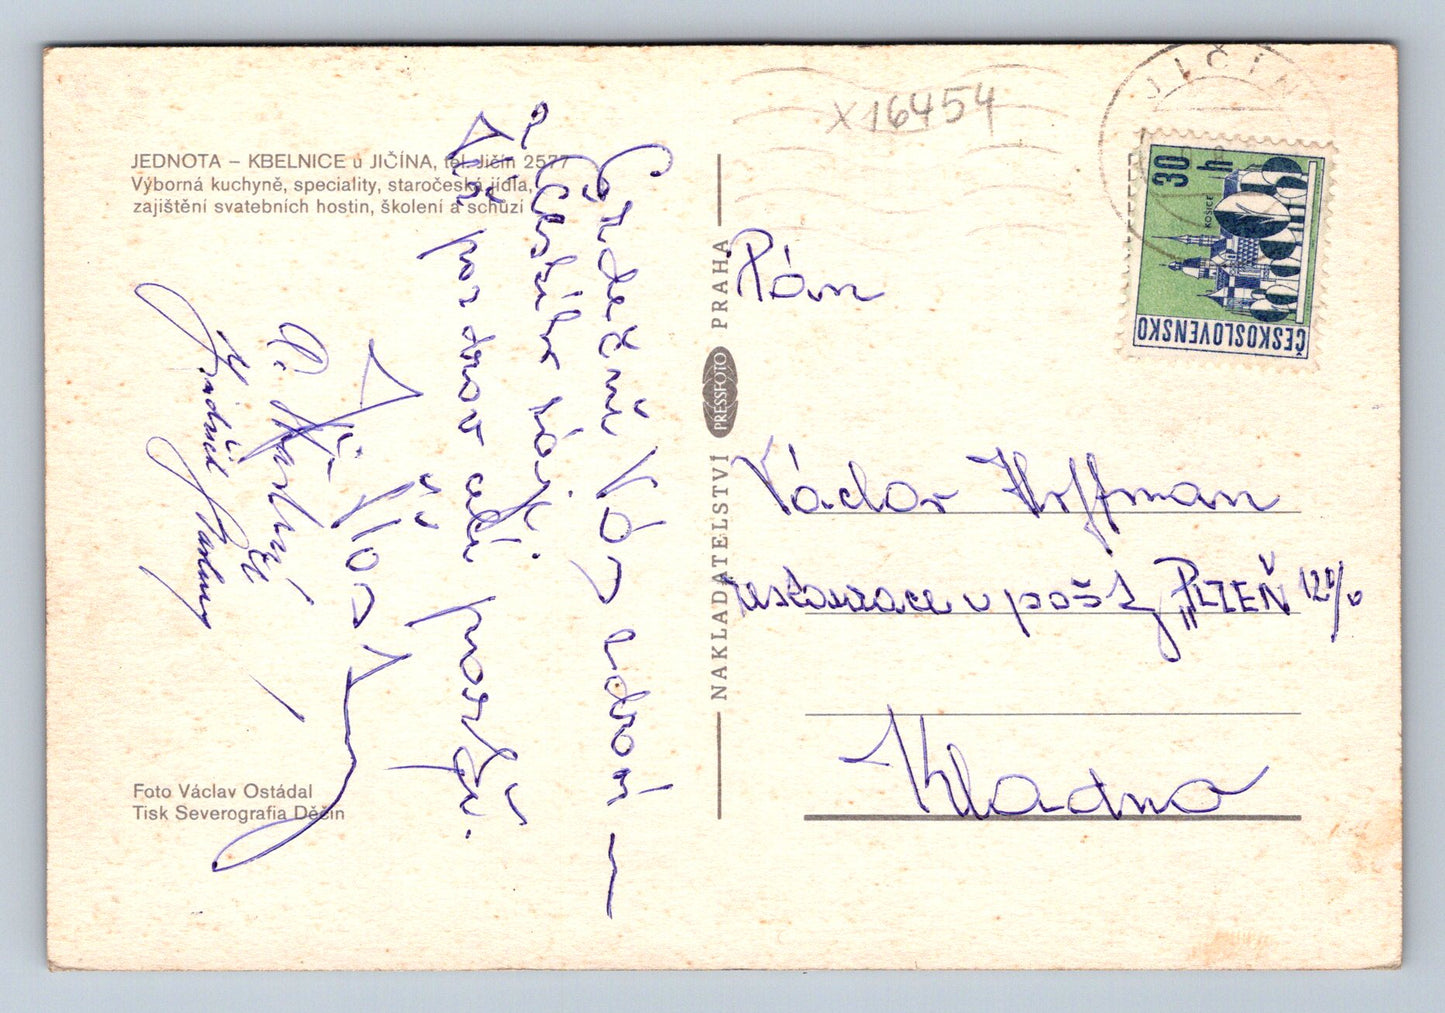 JEDNOTA – KBELNICE u JIČÍNA, tel. Jičín 2577
Výborná kuchyně, speciality, staročeská jídla,
zajištění svatebních hostin, školení a schůzí
Srdečně Vás zdraví
z Českého ráje
a
pozdrav celé
Foto Václav Ostádal
Tisk Severografia Děčín
NAKLADATELSTVÍ PRESSFOTO PRAHA
X16454
JIČÍN
30 h
KOŠICE
ČESKOSLOVENSKO
Pán
Václav Hoffman
restaurace u pošty „PLZEŇ 12%
Kladno